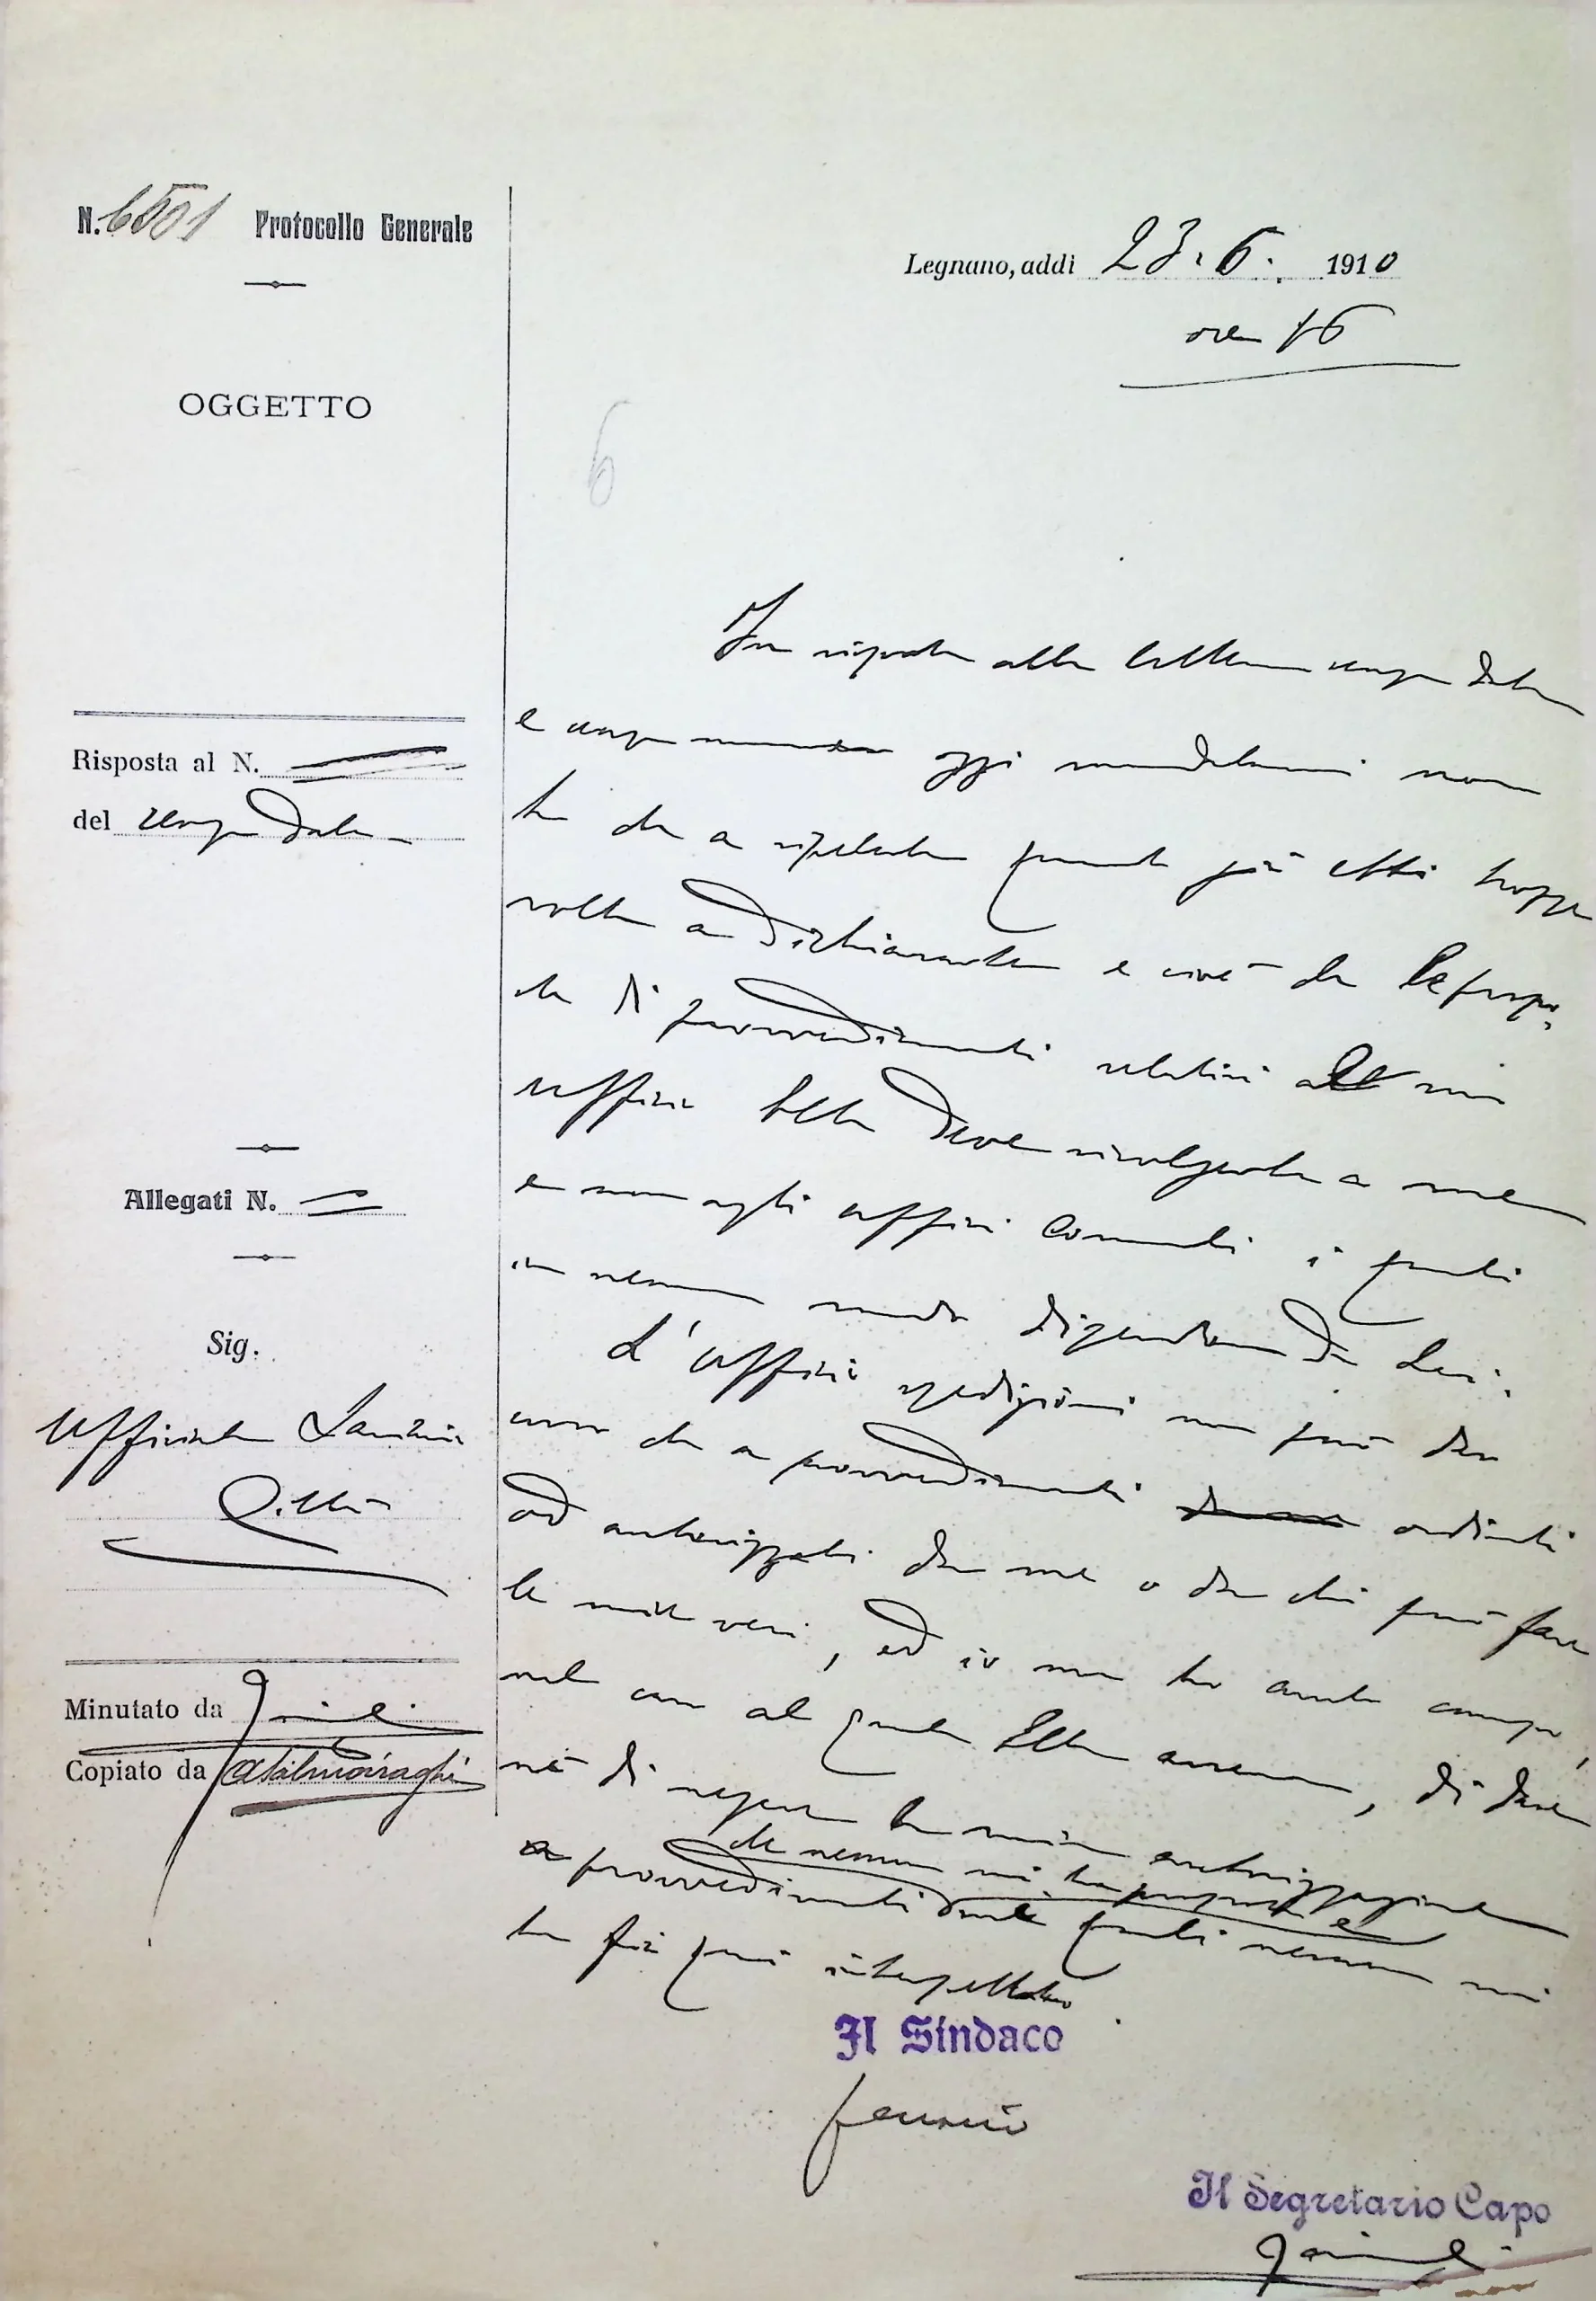 N. 6501 Protocollo Generale
Legnano, addì 23. 6. 1910
ore 16
OGGETTO
6
In risposta alla lettera pari data
e oggi non
ho che a ripeterle quanto già ebbi troppe
volte a dichiararle e cioè che le propo-
ste di provvedimenti relativi all mio
ufficio Ella deve rivolgerle a me
e non agli uffici Comunali i quali
in nessun modo dipendono da Lei.
L'ufficio spedizioni non può dar
corso che a provvedimenti ordinati
od autorizzati da me o da chi può fare
le mie veci, ed io non ho avuto campo,
nel caso al quale Ella accenna, di dare
nè di negare la mia autorizzazione
che nessuno mi ha proposti e
a provvedimenti sui quali nessuno mi
ha fin qui interpellato.
Risposta al N.
del pari data
Allegati N.
Sig.
Ufficiale Sanitario
Città
Minutato da
Copiato da
Il Sindaco
Il Segretario Capo